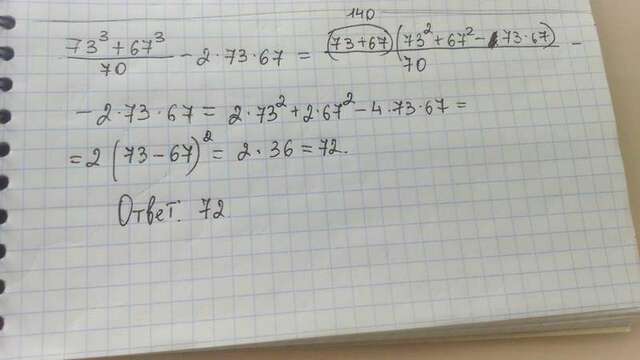 140
(73³ + 67³)/70 - 2·73·67 = (73+67)(73²+67² - 73·67)/70 -
- 2·73·67 = 2·73² + 2·67² - 4·73·67 =
= 2(73-67)² = 2·36 = 72.
Ответ: 72